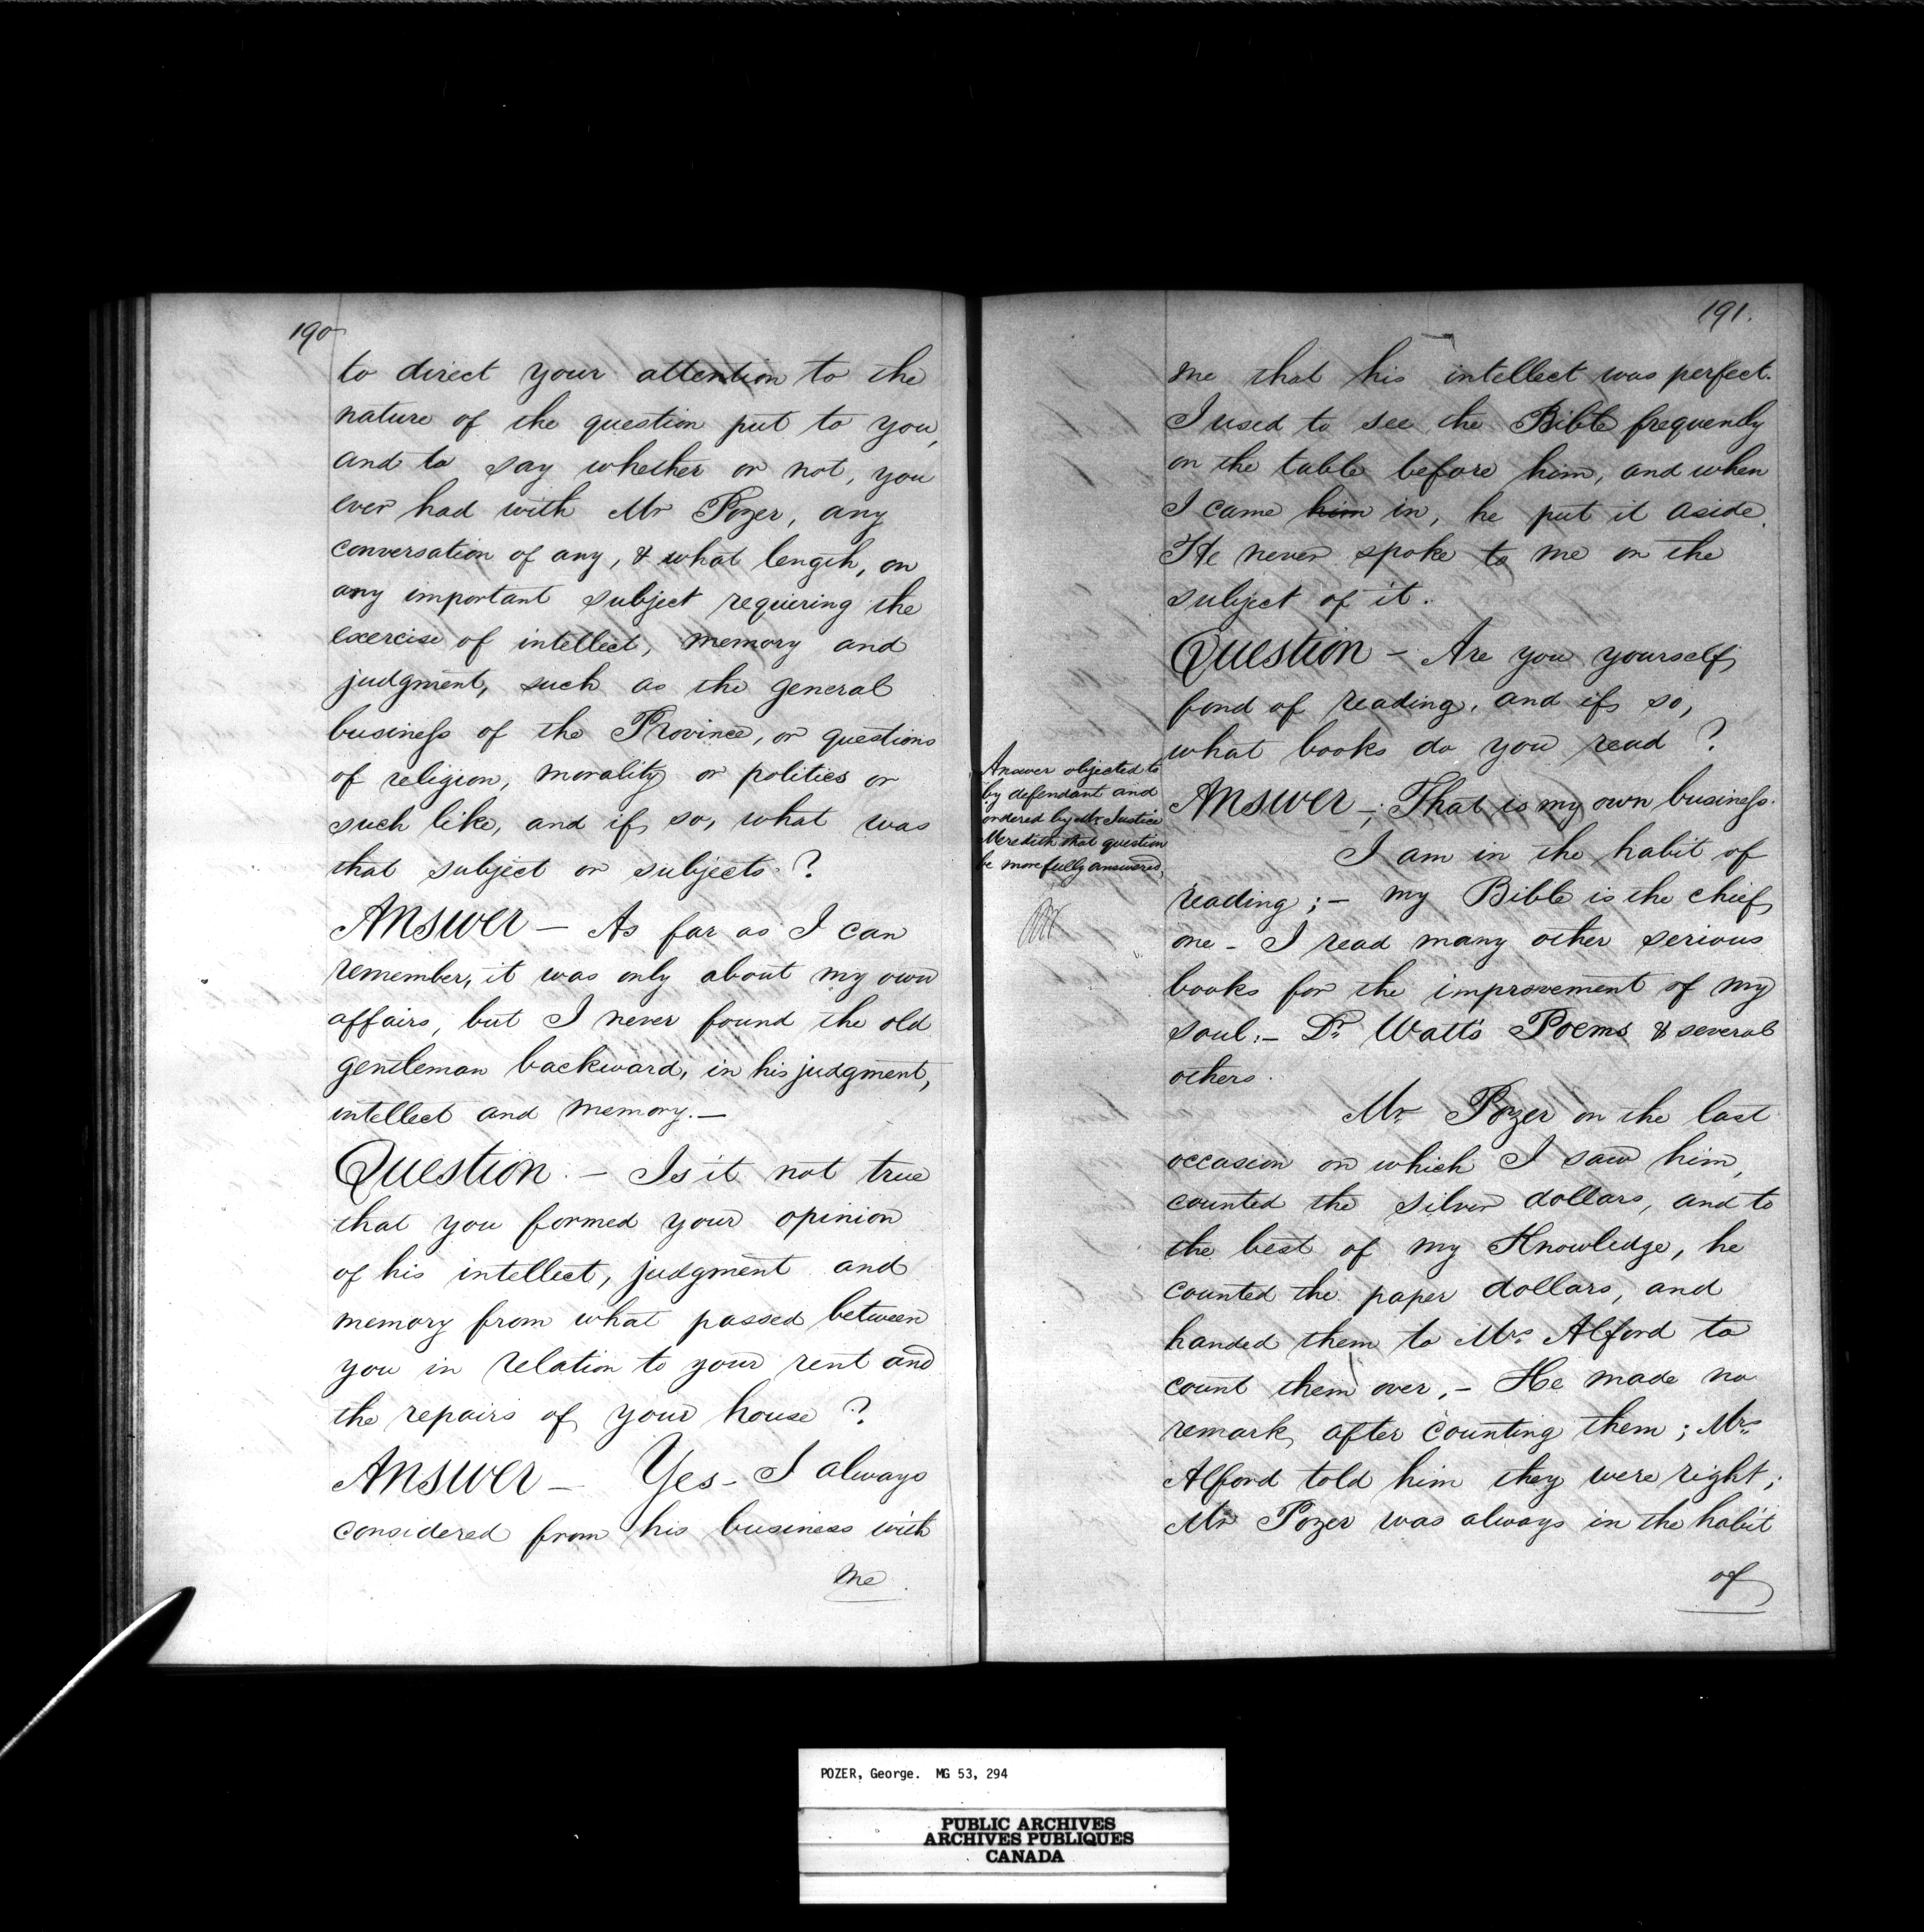 190
to direct your attention to the
nature of the question put to you,
and to say whether or not, you
ever had with Mr Pozer, any
conversation of any, & what length, on
any important subject requiering the
exercise of intellect, memory and
judgment, such as the general
business of the Province, or questions
of religion, morality or politics or
such like, and if so, what was
that subject or subjects. ?
Answer – As far as I can
remember, it was only about my own
affairs, but I never found the old
gentleman backward, in his judgment,
intellect and memory. –
Question. – Is it not true
that you formed your opinion
of his intellect, judgment and
memory from what passed between
you in relation to your rent and
the repairs of your house ?
Answer – Yes – I always
considered from his business with
me
191.
me that his intellect was perfect.
I used to see the Bible frequently
on the table before him, and when
I came him in, he put it aside.
He never spoke to me on the
subject of it.
Question – Are you yourself
fond of reading, and if so,
what books do you read ?
Answer objected to
by defendant and
ordered by Mr Justice
Meredith that question
be more fully answered,
Answer –; That is my own business.
I am in the habit of
reading ; – my Bible is the chief
one – I read many other serious
books for the improvement of my
soul. – Dr Watt's Poems & several
others.
Mr Pozer on the last
occasion on which I saw him,
counted the silver dollars, and to
the best of my Knowledge, he
counted the paper dollars, and
handed them to Mrs Alford to
count them over, – He made no
remark, after counting them ; Mrs
Alford told him they were right ;
Mr Pozer was always in the habit
of
POZER, George. MG 53, 294
PUBLIC ARCHIVES
ARCHIVES PUBLIQUES
CANADA